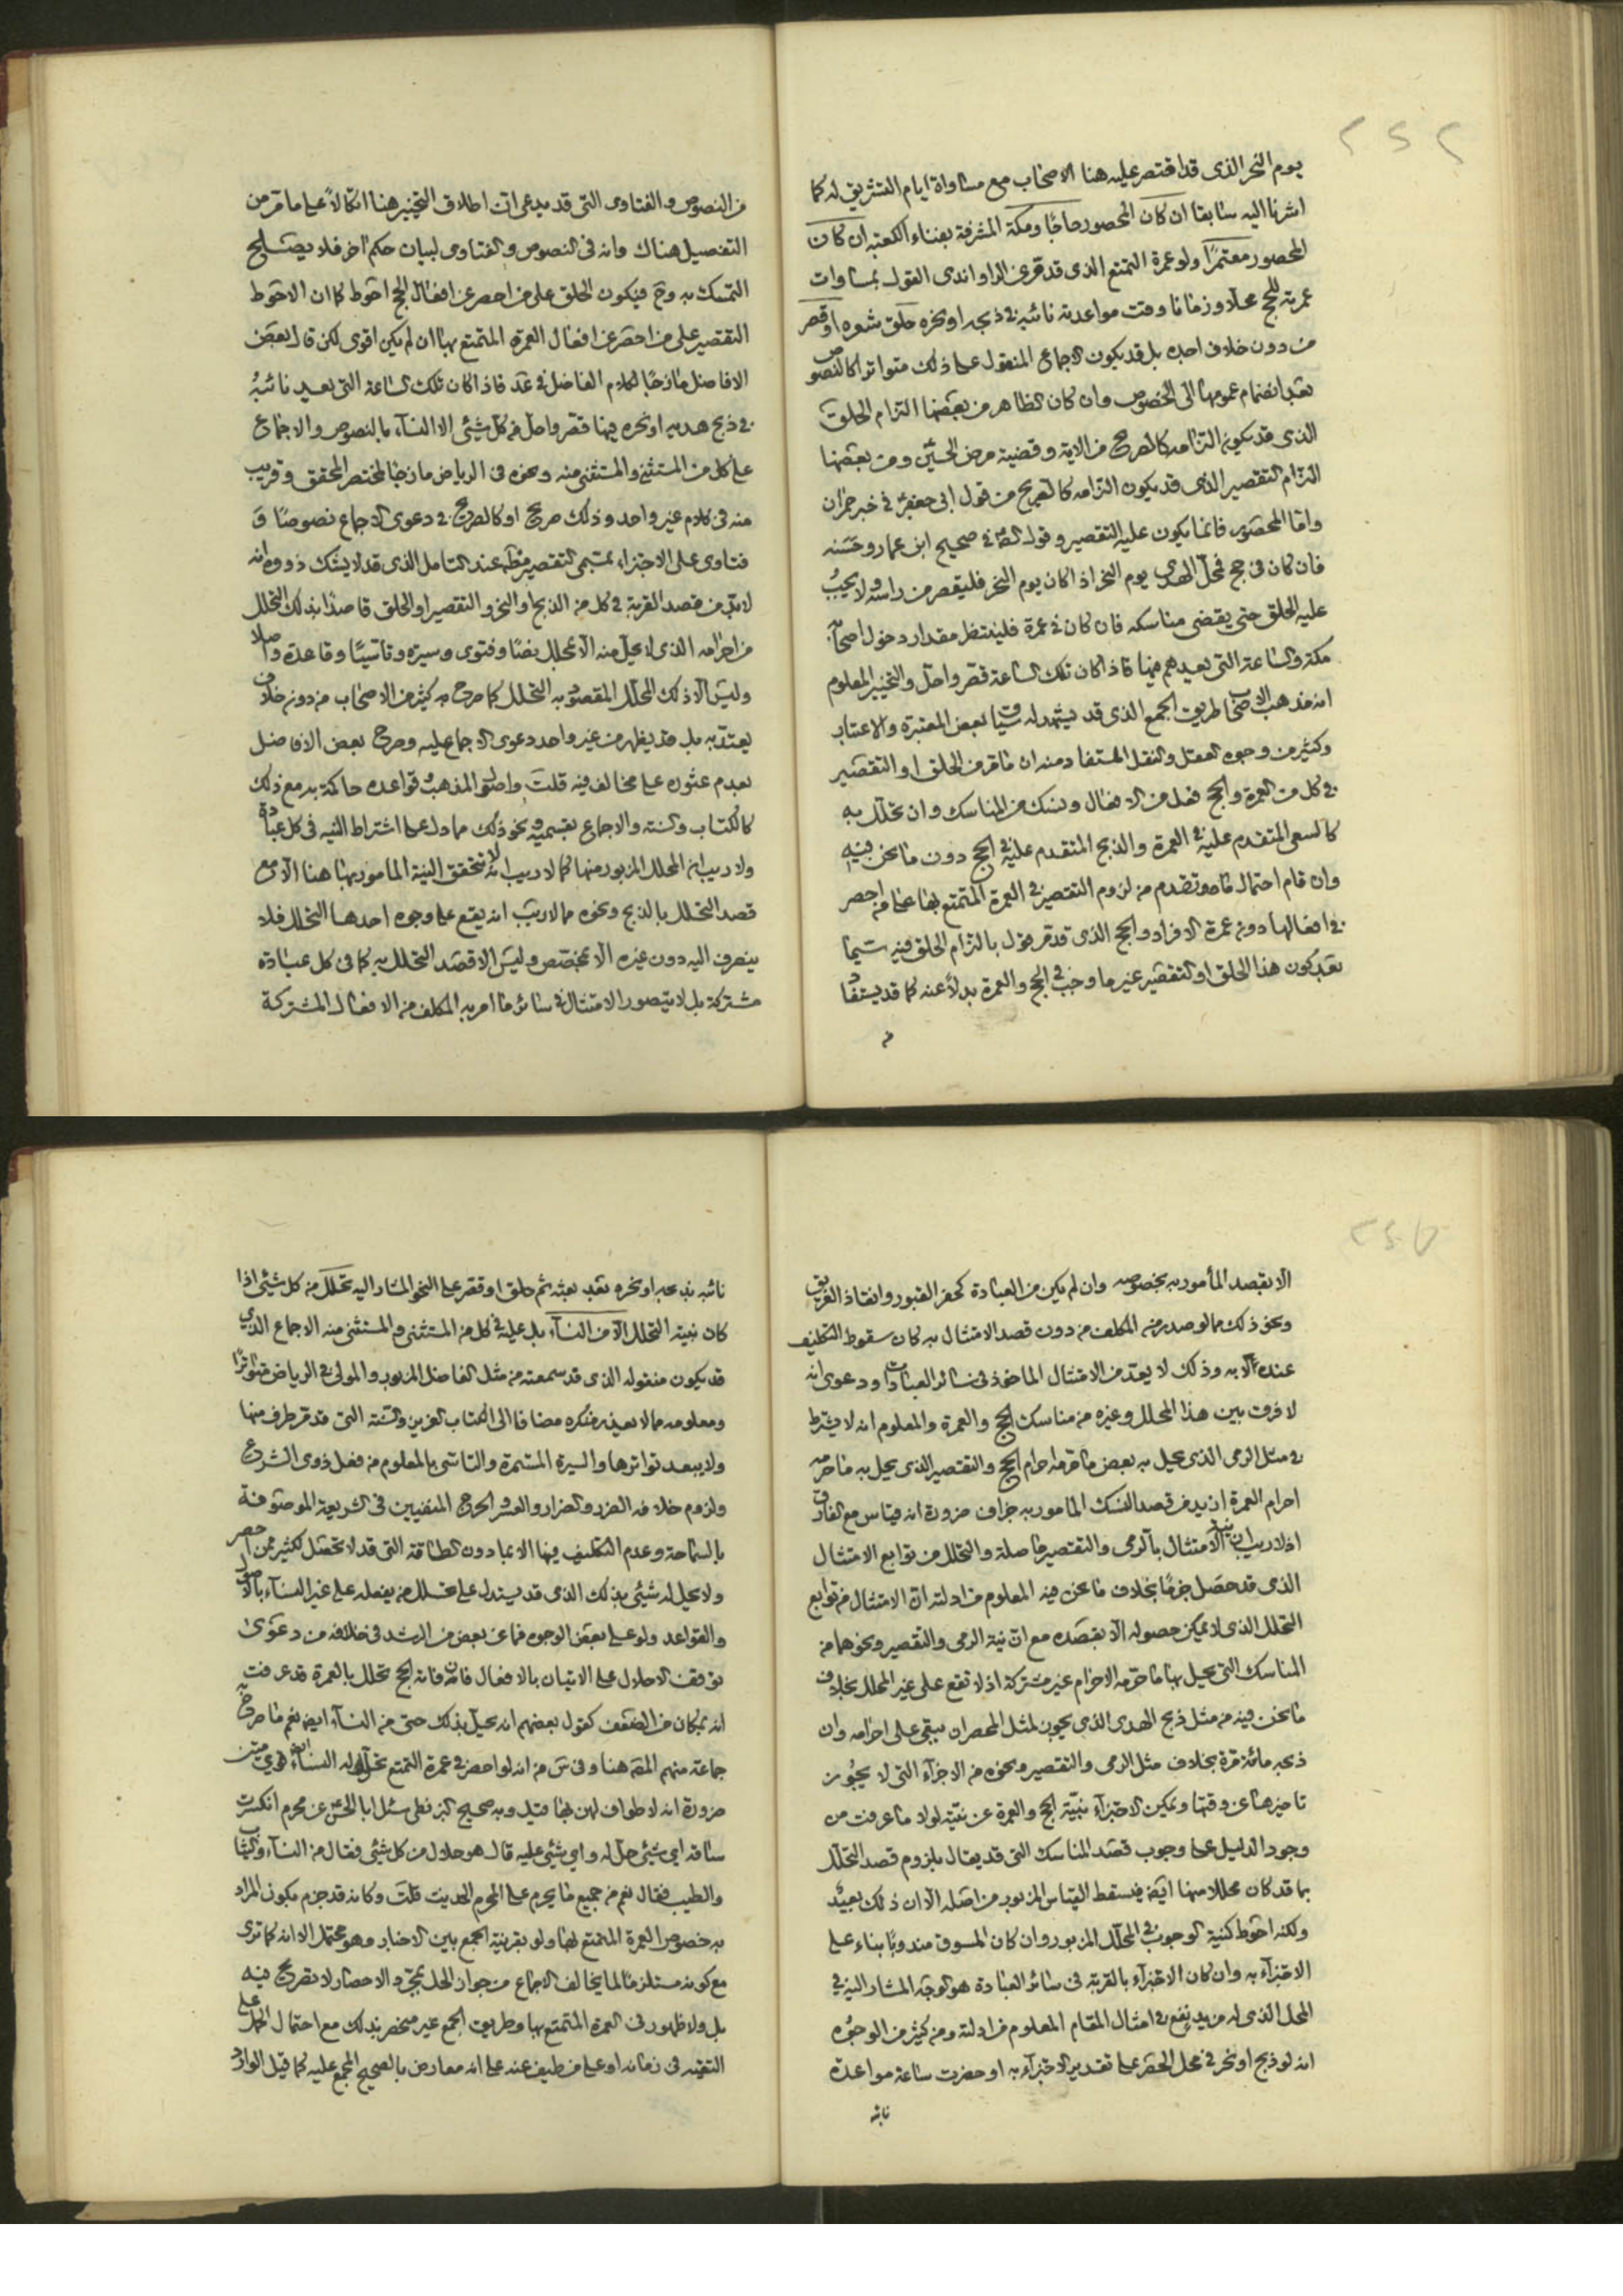 ٢٤٤
يوم النحر الذى قد اقتصر عليه هنا الاصحاب مع مساواة ايام التشريق له كما
اشرنا اليه سابقا ان كان المحصور حاجا ومكة المشرفة بفناء الكعبة ان كان
المحصور معتمرا ولو عمرة التمتع الذى قد مر عن الراوندى القول بمساوات
عمرته للحج محلا وزمانا وقت مواعدته نائبه فى ذبحه او نحره حلق شعره او قصر
من دون خلاف اجده بل قد يكون الاجماع المنقول على ذلك متواترا كالنصوص
بعد انضمام عمومها الى الخصوص وان كان الظاهر من بعضها التزام الحلق
الذى قد يكون التزامه كالصريح من الاية وقضية مرض الحسين ومن بعضها
التزام التقصير الذى قد يكون التزامه كالصريح من قول ابى جعفر فى خبر حمران
واما المحصور فانما يكون عليه التقصير وقول الصادق فى صحيح ابن عمار وحسنه
فان كان فى حج فمحل الهدى يوم النحر اذا كان يوم النحر فليقصر من راسه ولا يجب
عليه الحلق حتى يقضى مناسكه فان كان فى عمرة فلينتظر مقدار دخول اصحابه
مكة والساعة التى يعدهم فيها فاذا كان تلك الساعة قصر واحل والتخيير المعلوم
انه مذهب الاصحاب طريق الجمع الذى قد يشهد له سياق بعض المعتبرة والاعتبار
وكثير من وجوه العقل والنقل المستفاد منه ان ما مر من الحلق او التقصير
فى كل من العمرة والحج فعل من الافعال ونسك من المناسك وان تحلل به
كالسعى المتقدم عليه فى العمرة والذبح المتقدم عليه فى الحج دون ما نحن فيه
وان قام احتمال ما هو تقدم من لزوم التقصير فى العمرة المتمتع بها على من احصر
فى افعالها دون عمرة الافراد والحج الذى قد مر قول بالتزام الحلق فيه سيما
بعد كون هذا الحلق او التقصير غير ما وجب فى الحج والعمرة بدلا عنه كما قد يستفاد
من
من النصوص والفتاوى التى قد يدعى ان اطلاق التخيير هنا اتكالا على ما مر من
التفصيل هناك وانه فى النصوص والفتاوى لبيان حكم اخر فلا يصلح
التمسك به وح فيكون الحلق على من احصر عن افعال الحج احوط كما ان الاحوط
التقصير على من احصر عن افعال العمرة المتمتع بها ان لم يكن اقوى لكن قال بعض
الافاضل مازجا لكلام الفاضل فى عد فاذا كان تلك الساعة التى يعد نائبه
فى ذبح هديه او نحره فيها قصر واحل من كل شيئ الا النساء بالنصوص والاجماع
على كل من المستثنى والمستثنى منه ونحوه فى الرياض مازجا لمختصر المحقق وقريب
منه فى كلام غير واحد وذلك صريح او كالصريح فى دعوى الاجماع نصوصا و
فتاوى على الاجتزاء بمسمى التقصير مط عند التامل الذى قد لا يشك ذووه انه
لا بد من قصد القربة فى كل من الذبح او النحر والتقصير او الحلق قاصدا بذلك التحلل
من احرامه الذى لا يحل منه الا بمحلل نصا وفتوى وسيرة وتاسيا وقاعدة واصلا
وليس الا ذلك المحلل المقصود به التحلل كما صرح به كثير من الاصحاب من دون خلاف
يعتد به بل قد يظهر من غير واحد دعوى الاجماع عليه وصرح بعض الافاضل
بعدم عثوره على مخالف فيه قلت واصول المذهب وقواعده حاكمة به مع ذلك
كالكتاب والسنة والاجماع بقسميه ونحو ذلك مما دل على اشتراط النيه فى كل عبادة
ولا ريب ان المحلل المزبور منها كما لا ريب انه لا تتحقق النية المامور بها هنا الا مع
قصد التحلل بالذبح ونحوه مما لا ريب انه يقع على وجوه احدها التحلل فلا
ينصرف اليه دون غيره الا بمخصص وليس الا قصد التحلل به كما فى كل عبادة
مشتركة بل لا يتصور الامتثال فى سائر ما امر به المكلف من الافعال المشتركة
٢٤٥
الا بقصد المأمور به بخصوصه وان لم يكن من العبادة كحفر القبور وانقاذ الغريق
ونحو ذلك مما لو صدر من المكلف من دون قصد الامتثال به كان سقوط التكليف
عنده لا به وذلك لا يعد من الامتثال الماخوذ فى سائر العبادات ودعوى انه
لا فرق بين هذا المحلل وغيره من مناسك الحج والعمرة والمعلوم انه لا يشترط
فى مثل الرمى الذى يحل به بعض ما حرمه احرام الحج والتقصير الذى يحل به ما حرمه
احرام العمرة ازيد من قصد النسك المامور به جزاف ضرورة انه قياس مع الفارق
اذ لا ريب ان نية الامتثال بالرمى والتقصير حاصلة والتحلل من توابع الامتثال
الذى قد حصل جزما بخلاف ما نحن فيه المعلوم من ادلته ان الامتثال من توابع
التحلل الذى لا يمكن حصوله الا بقصده مع ان نية الرمى والتقصير ونحوهما من
المناسك التى يحل بها ما حرمه الاحرام غير مشتركة اذ لا تقع على غير المحلل بخلاف
ما نحن فيه من مثل ذبح الهدى الذى يجوز لمثل المحصر ان يبقى على احرامه وان
ذبحه مائة مرة بخلاف مثل الرمى والتقصير ونحوه من الاجزاء التى لا يجوز
تاخيرها عن وقتها ويمكن الاجتزاء بنية الحج والعمرة عن نيته لولا ما عرفت من
وجود الدليل على وجوب قصد المناسك التى قد يقال بلزوم قصد التحلل
بما قد كان محللا منها ايضا فيسقط القياس المزبور من اصله الا ان ذلك بعيد
ولكنه احوط كنية الوجوب فى المحلل المزبور وان كان المسوق مندوبا بناء على
الاجتزاء به وان كان الاجتزاء بالقربة فى سائر العبادة هو الوجه المشار اليه فى
المحل الذى له مزيد نفع فى امثال المقام المعلوم من ادلته ومن كثير من الوجوه
انه لو ذبح او نحر فى محل الحصر على تقدير الاجتزاء به او حضرت ساعة مواعدة
نائبه
نائبه بذبحه او نحره بعد بعثه ثم حلق او قصر على النحو المشار اليه تحلل من كل شيئ اذا
كان بنية التحلل الا من النساء بل عليه فى كل من المستثنى والمستثنى منه الاجماع الذى
قد يكون منقوله الذى قد سمعته من مثل الفاضل المزبور والمولى فى الرياض متواترا
ومعلومه مما لا يعذر منكره مضافا الى الكتاب العزيز والسنة التى قد مر طرف منها
ولا يبعد تواترها والسيرة المستمرة والتاسى بالمعلوم من فعل ذوى الشرع
ولزوم خلافه الضرر والضرار والعسر والحرج المنفيين فى الشريعة الموصوفة
بالسماحة وعدم التكليف فيها الا بما دون الطاقة التى قد لا تحصل لكثير ممن احصر
ولا يحل له شيئ بذلك الذى قد يستدل على تحلل من يفعله على غير النساء بالاصول
والقواعد ولو على بعض الوجوه فما عن بعض من الرشد فى خلافه من دعوى
توقف الاحلال على الاتيان بالافعال فان فاته الحج تحلل بالعمرة قد عرفت
انه بمكان من الضعف كقول بعضهم انه يحل بذلك حتى من النساء ايض نعم ما صرح به
جماعة منهم المص هنا وفى س من انه لو احصر فى عمرة التمتع تحل له النساء ايض قوى متين
ضرورة انه لا طواف لهن بها قيل وبه صحيح البزنطى سئل ابا الحسن عن محرم انكسرت
ساقه اى شيئ حل له واى شيئ عليه قال هو حلال من كل شيئ فقال من النساء والثياب
والطيب فقال نعم من جميع ما يحرم على المحرم الحديث قلت وكانه قد جزم بكون المراد
به خصوص العمرة المتمتع بها ولو بقرينة الجمع بين الاخبار وهو محتمل الا انه كما ترى
مع كونه مستلزما لما يخالف الاجماع من جواز الحل بمجرد الاحصار لا تصريح فيه
بل ولا ظهور فى العمرة المتمتع بها وطريق الجمع غير منحصر بذلك مع احتمال الحمل على
التقيه فى زمانه او على من طيف عنه على انه معارض بالصحيح المجمع عليه كما قيل الوارد